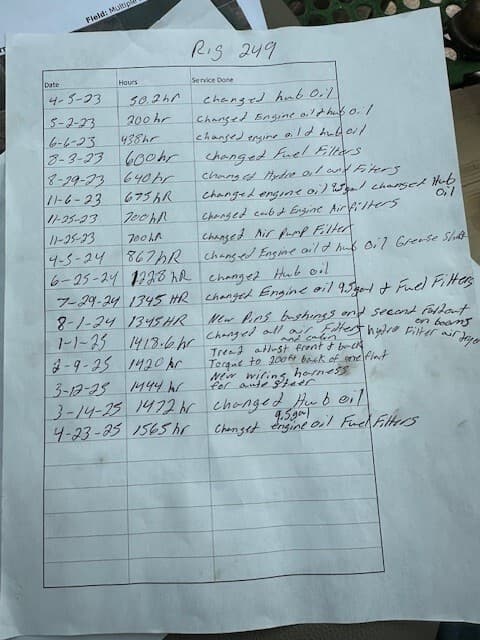 Field: Multiple
Rig 249
Date Hours Service Done
4-5-23 50.2hr changed hub oil
5-2-23 200hr Changed Engine oil & hub oil
6-6-23 438hr changed engine oil & hub oil
8-3-23 600hr changed Fuel Filters
8-29-23 640hr Changed Hydro oil and Fiters
11-6-23 675hR Changed engine oil 9.5gal changed Hub oil
11-25-23 700hR changed cab & Engine Air filters
11-25-23 700hR Changed Air Pump Filter
4-5-24 867hR changed Engine oil & hub oil Grease
6-25-24 1228hR changed Hub oil
7-29-24 1345HR changed Engine oil 9.5gal & Fuel Filters
8-1-24 1345HR New Pins bushings on second Foldout on booms
1-1-25 1418.6hr changed all air Filters and cabin hydro Filter air
2-9-25 1420hr Tread adjust Front & back
Torque to 200ft back of one flat
3-12-25 1444hr New wiring harness
for auto steer
3-14-25 1472hr changed Hub oil
4-23-25 1565hr Changed 9.5gal engine oil Fuel Filters